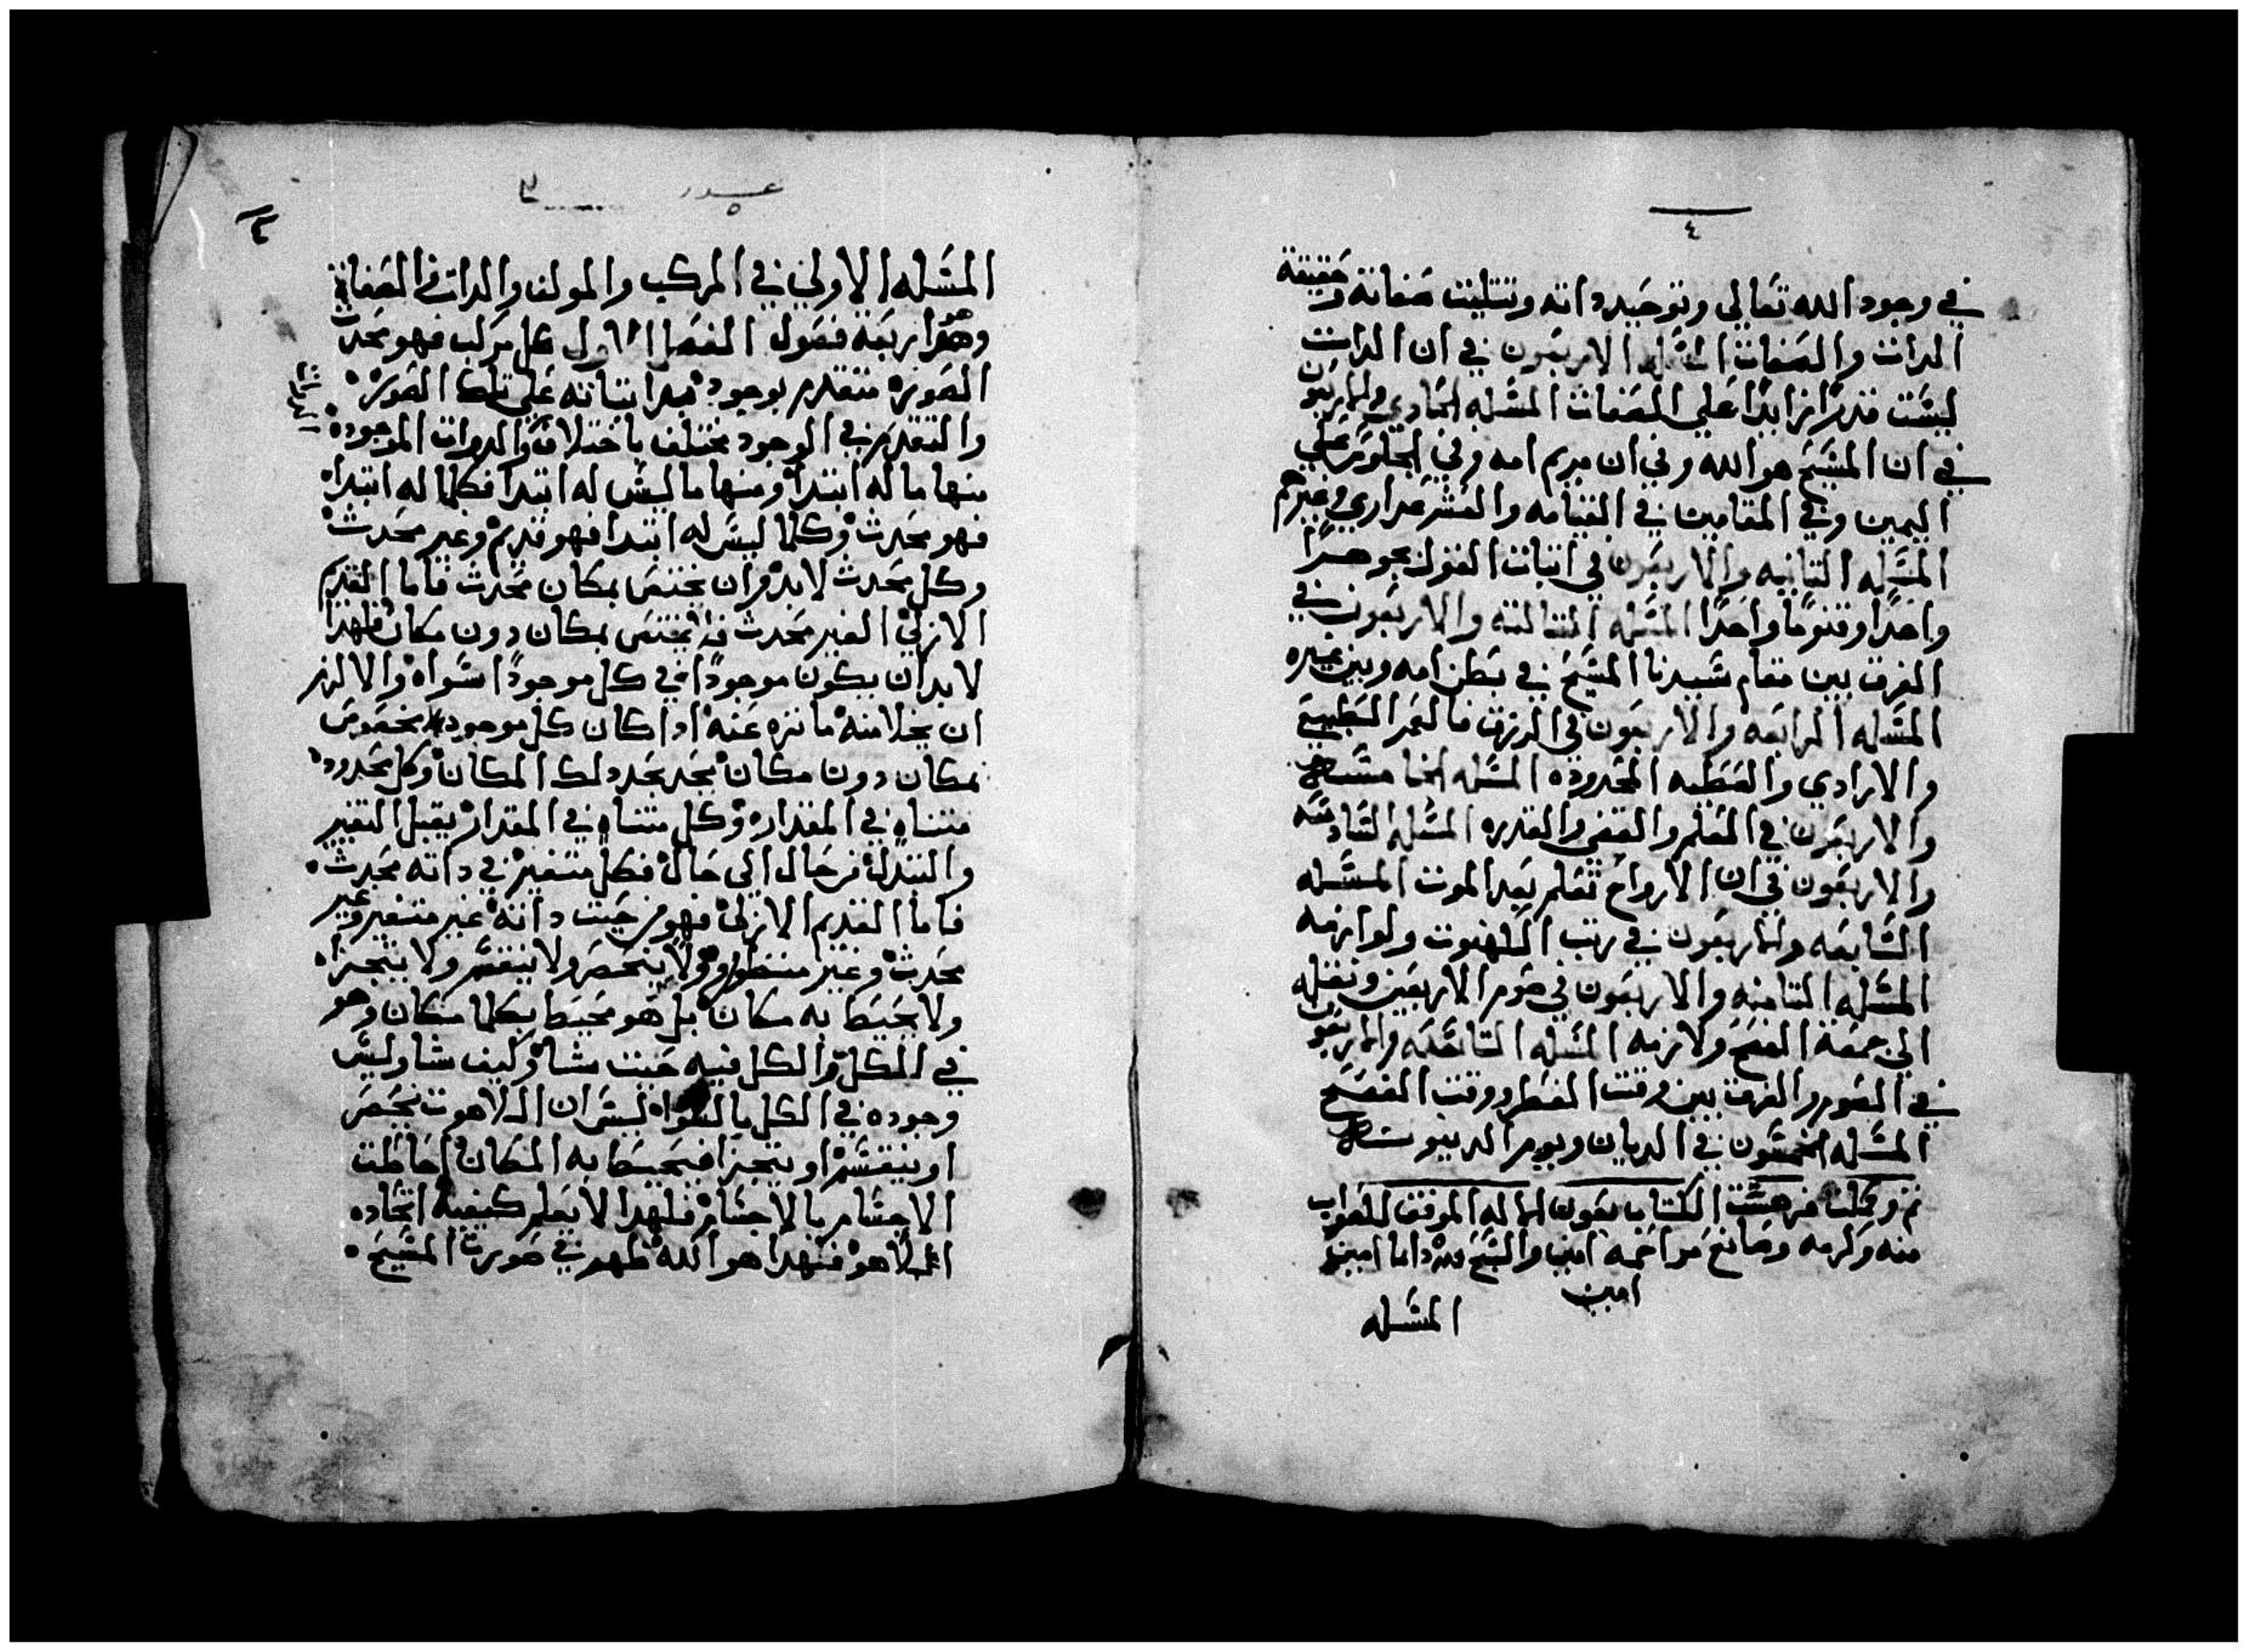 ٤
في وجود الله تعالى وتوحيد داته وتتليت صفاته وحقيقة
الدات والصفات المسله الاربعون في ان الدات
ليست قدرًا زايدًا علي الصفات المسله الحادي والاربعون
في ان المسيح هو الله وفي ان مريم امه وفي الجلوس علي
اليمين وفي المقامين في القيامه والعشر عداري وغيرهم
المسله التانيه والاربعون في اتبات القول بجوهرًا
واحدًا وقنومًا واحدًا المسله التالته والاربعون في
الفرق بين مقام سيدنا المسيح في بطن امه وبين غيره
المسله الرابعه والاربعون في الرزق والعمر الطبيعي
والارادي والقطيه المحدوده المسله الخامسه
والاربعون في العلم والقضى والقدره المسله السادسه
والاربعون في ان الارواح تعلم بعد الموت المسله
السابعه والاربعون في رتب الكهنوت ولوازمه
المسله التامنه والاربعون في صوم الاربعين ونقله
الى جمعة الفصح ولازمه المسله التاسعه والاربعون
في الصوم والفرق بين وقت الفطر ووقت الفصح
المسله الخمسون في الديان ويوم الدينونه
تم وكملت فهرست الكتاب بعون الله الموفق للصواب
منه وكرمه وصانع مراحمه امين والسبح لله دايما امين
امين
المسله
٥
المسله الاولي في المركب والمولف والدات والصفات
وهو اربعة فصول الفصل الاول كل مركب فهو محدت
الصوره متقدم بوجود مبدا تباته على تلك الصوره
والتقدم في الوجود مختلف باختلاف الدوات الموجوده
منها ما له ابتدا ومنها ما ليس له ابتدا فكلما له ابتدا
فهو محدث وكلما ليس له ابتدا فهو قديم وغير محدث
وكل محدث لابد وان يختص بمكان محدث فاما القديم
الازلي الغير محدث فلا يختص بمكان دون مكان فلهذا
لابد ان يكون موجودًا في كل موجودًا سواه والا لزم
ان يخلا منه ما تنزه عنه ادا كان كل موجود مخصوص
بمكان دون مكان يحد بحد دلك المكان وكل محدود
متناه في المقدار وكل متناه في المقدار يقبل التغير
والتبدل من حال الى حال فكل متغير في داته محدث
فاما القديم الازلى فهو من حيت داته غير متغير وغير
محدث وغير منتظر ولا ينحصر ولا ينقسم ولا يتجزا
ولا يحيط به مكان بل هو محيط بكلما مكان وهو
في الكل والكل فيه حيت شا وكيف شا وليس
وجوده في الكل بالسواه ليس ان اللاهوت ينحصر
او ينقسم او يتجزا فيحيط به المكان احاطت
الاجسام بالاجسام فلهدا لا يعلم كيفية اتحاده
الا هو فهدا هو الله ظهر في صورت المسيح